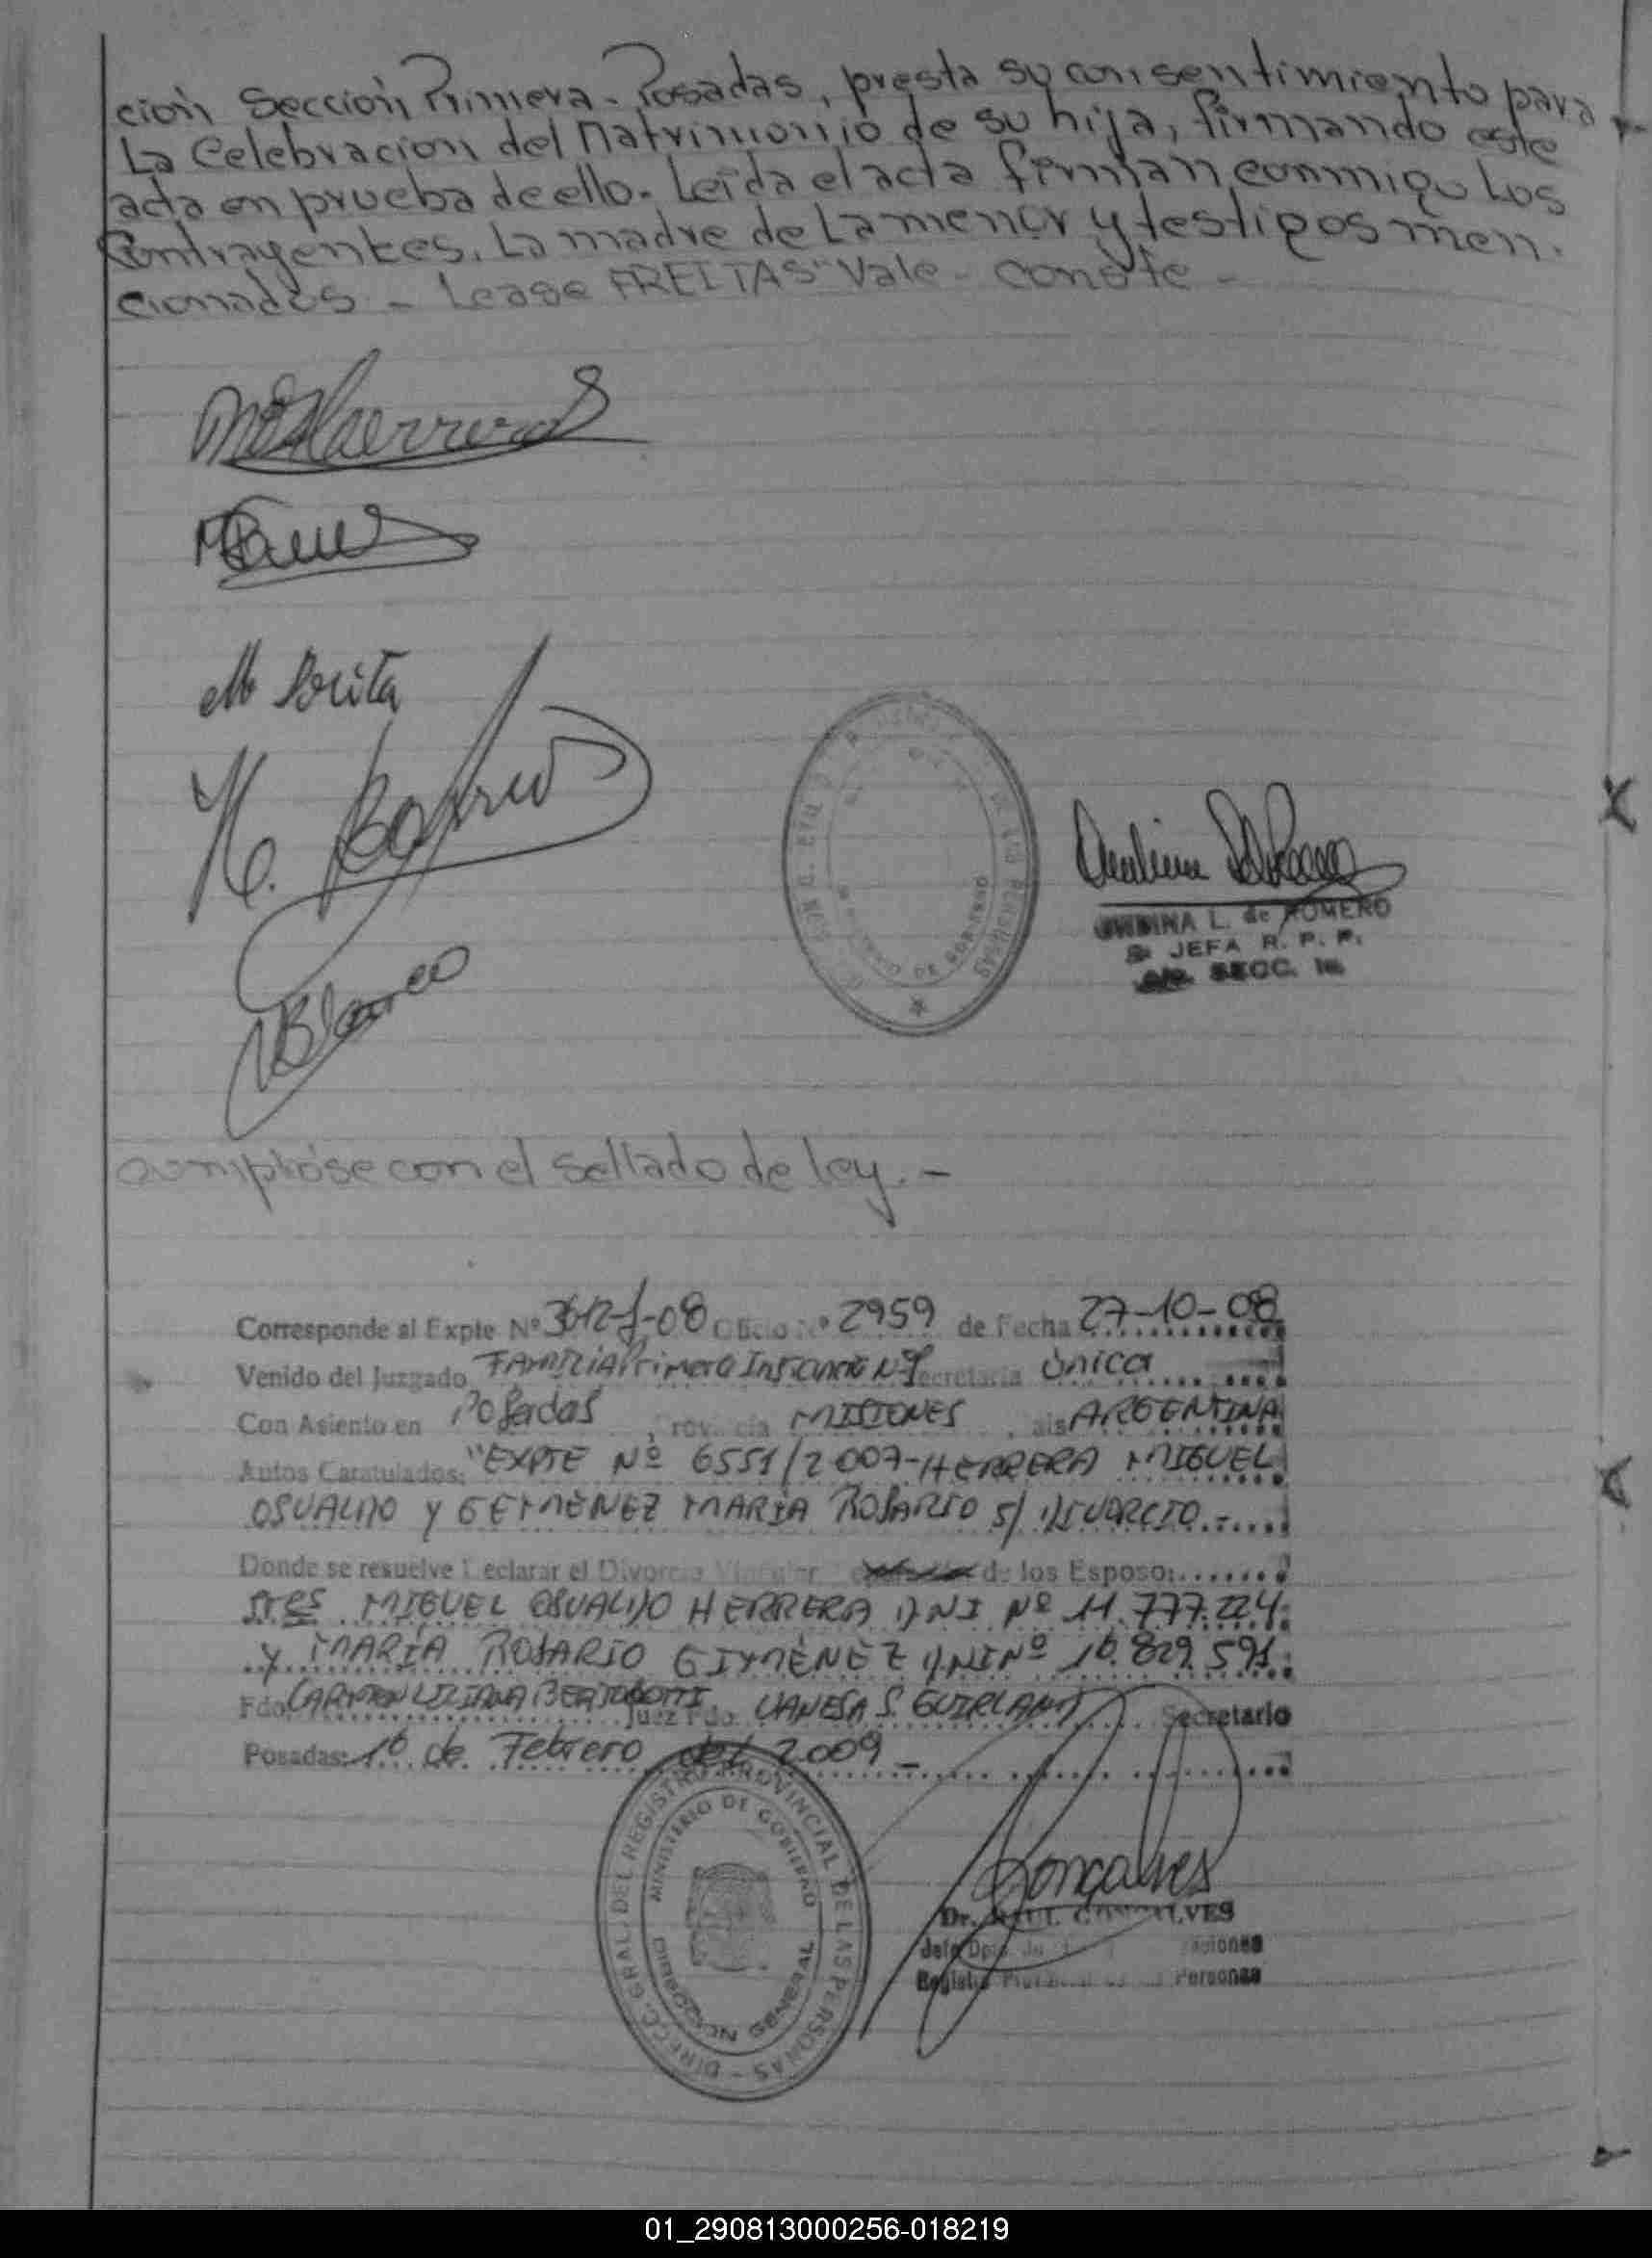 ción Sección Primera - Posadas, presta su consentimiento para
La Celebracion del Matrimonio de su hija, firmando este
acta en prueba de ello. Leída el acta firman conmigo Los
Contrayentes, La madre de La menor y testigos men.
cionados - Lease "FREITAS" Vale - conste -
M Herrera
H. Barrios
Blanco
L. de ROMERO
JEFA R. P. P.
SECC. 1a
cumplióse con el sellado de ley. -
Corresponde al Expte Nº 3612-J-08 Oficio Nº 2959 de Fecha 27-10-08
Venido del Juzgado FAMILIA Primera Instancia Nº Secretaría única
Con Asiento en Posadas, Provincia MISIONES, País ARGENTINA
Autos Caratulados: "EXPTE Nº 6551/2007-HERRERA MIGUEL
OSVALDO y GIMÉNEZ MARÍA ROSARIO S/ DIVORCIO.-
Donde se resuelve Declarar el Divorcio Vincular de los Esposo:
Sres MIGUEL OSVALDO HERRERA DNI Nº 11.777.224
y MARÍA ROSARIO GIMÉNEZ DNI Nº 16.829.591
Fdo. CARMEN LILIANA Juez Fdo. VANESA S. Secretario
Posadas: 16 de Febrero del 2009 -
DIRECC. GRAL. DEL REGISTRO PROVINCIAL DE LAS PERSONAS
MINISTERIO DE GOBIERNO
DIRECCION GENERAL
Goncalves
Dr. RAUL GONCALVES
Jefe Dpto.
Registro Provincial de las Personas
01_290813000256-018219